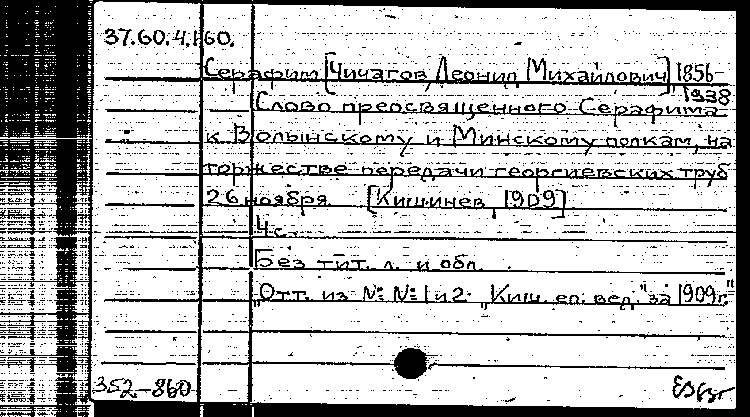 37.60.4.160.
Серафим [Чичагов, Леонид Михайлович] 1856-
1938
Слово преосвященного Серафима
к Волынскому и Минскому полкам, на
торжестве передачи георгиевских труб
26 ноября. [Кишинев, 1909]
4 с.
Без тит. л. и обл.
„Отт. из №№ 1 и 2 „Киш. еп. вед." за 1909г."
352-860